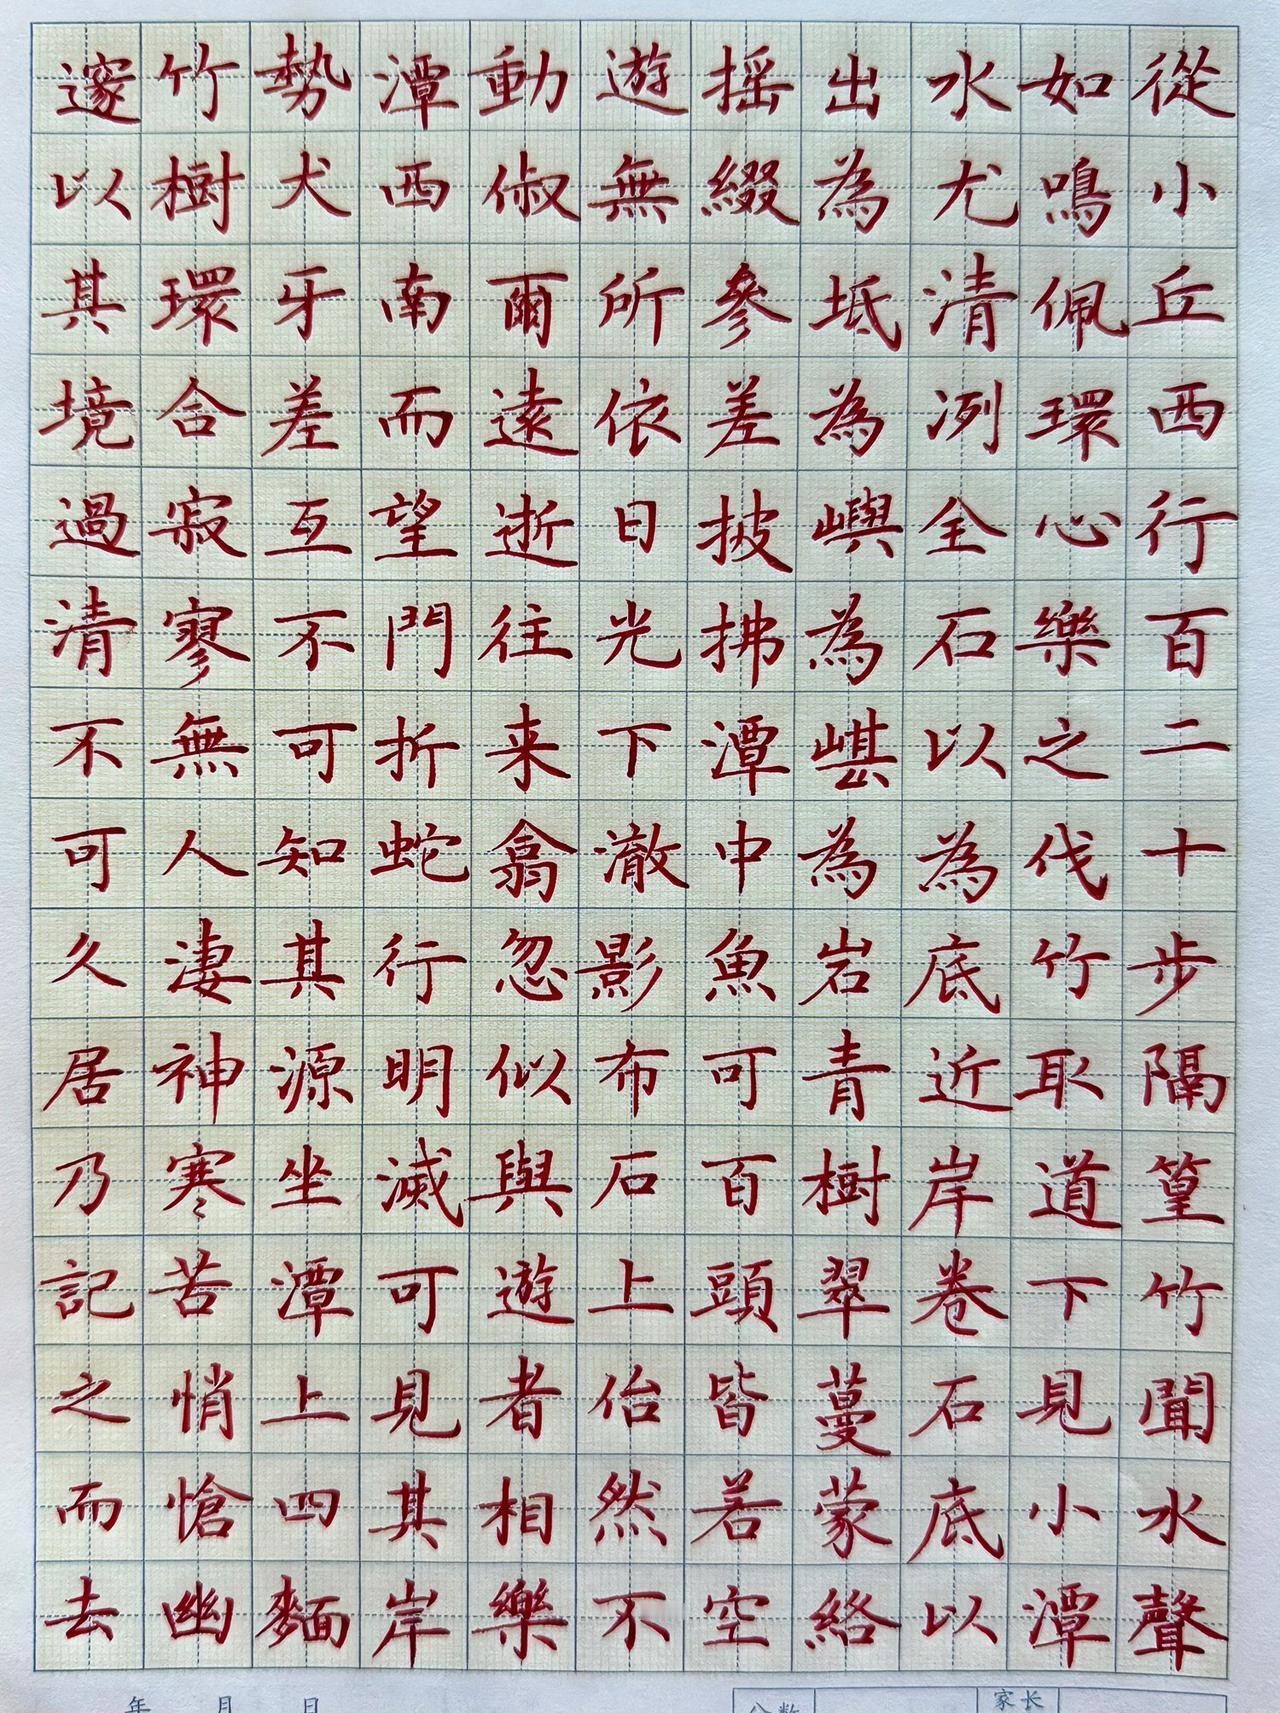 從小丘西行百二十步隔篁竹聞水聲
如鳴佩環心樂之伐竹取道下見小潭
水尤清冽全石以為底近岸卷石底以
出為坻為嶼為嵁為岩青樹翠蔓蒙絡
摇綴參差披拂潭中魚可百頭皆若空
遊無所依日光下澈影布石上佁然不
動俶爾遠逝往来翕忽似與遊者相樂
潭西南而望門折蛇行明滅可見其岸
勢犬牙差互不可知其源坐潭上四麵
竹樹環合寂寥無人淒神寒苦悄愴幽
邃以其境過清不可久居乃記之而去
年 月 日
家长